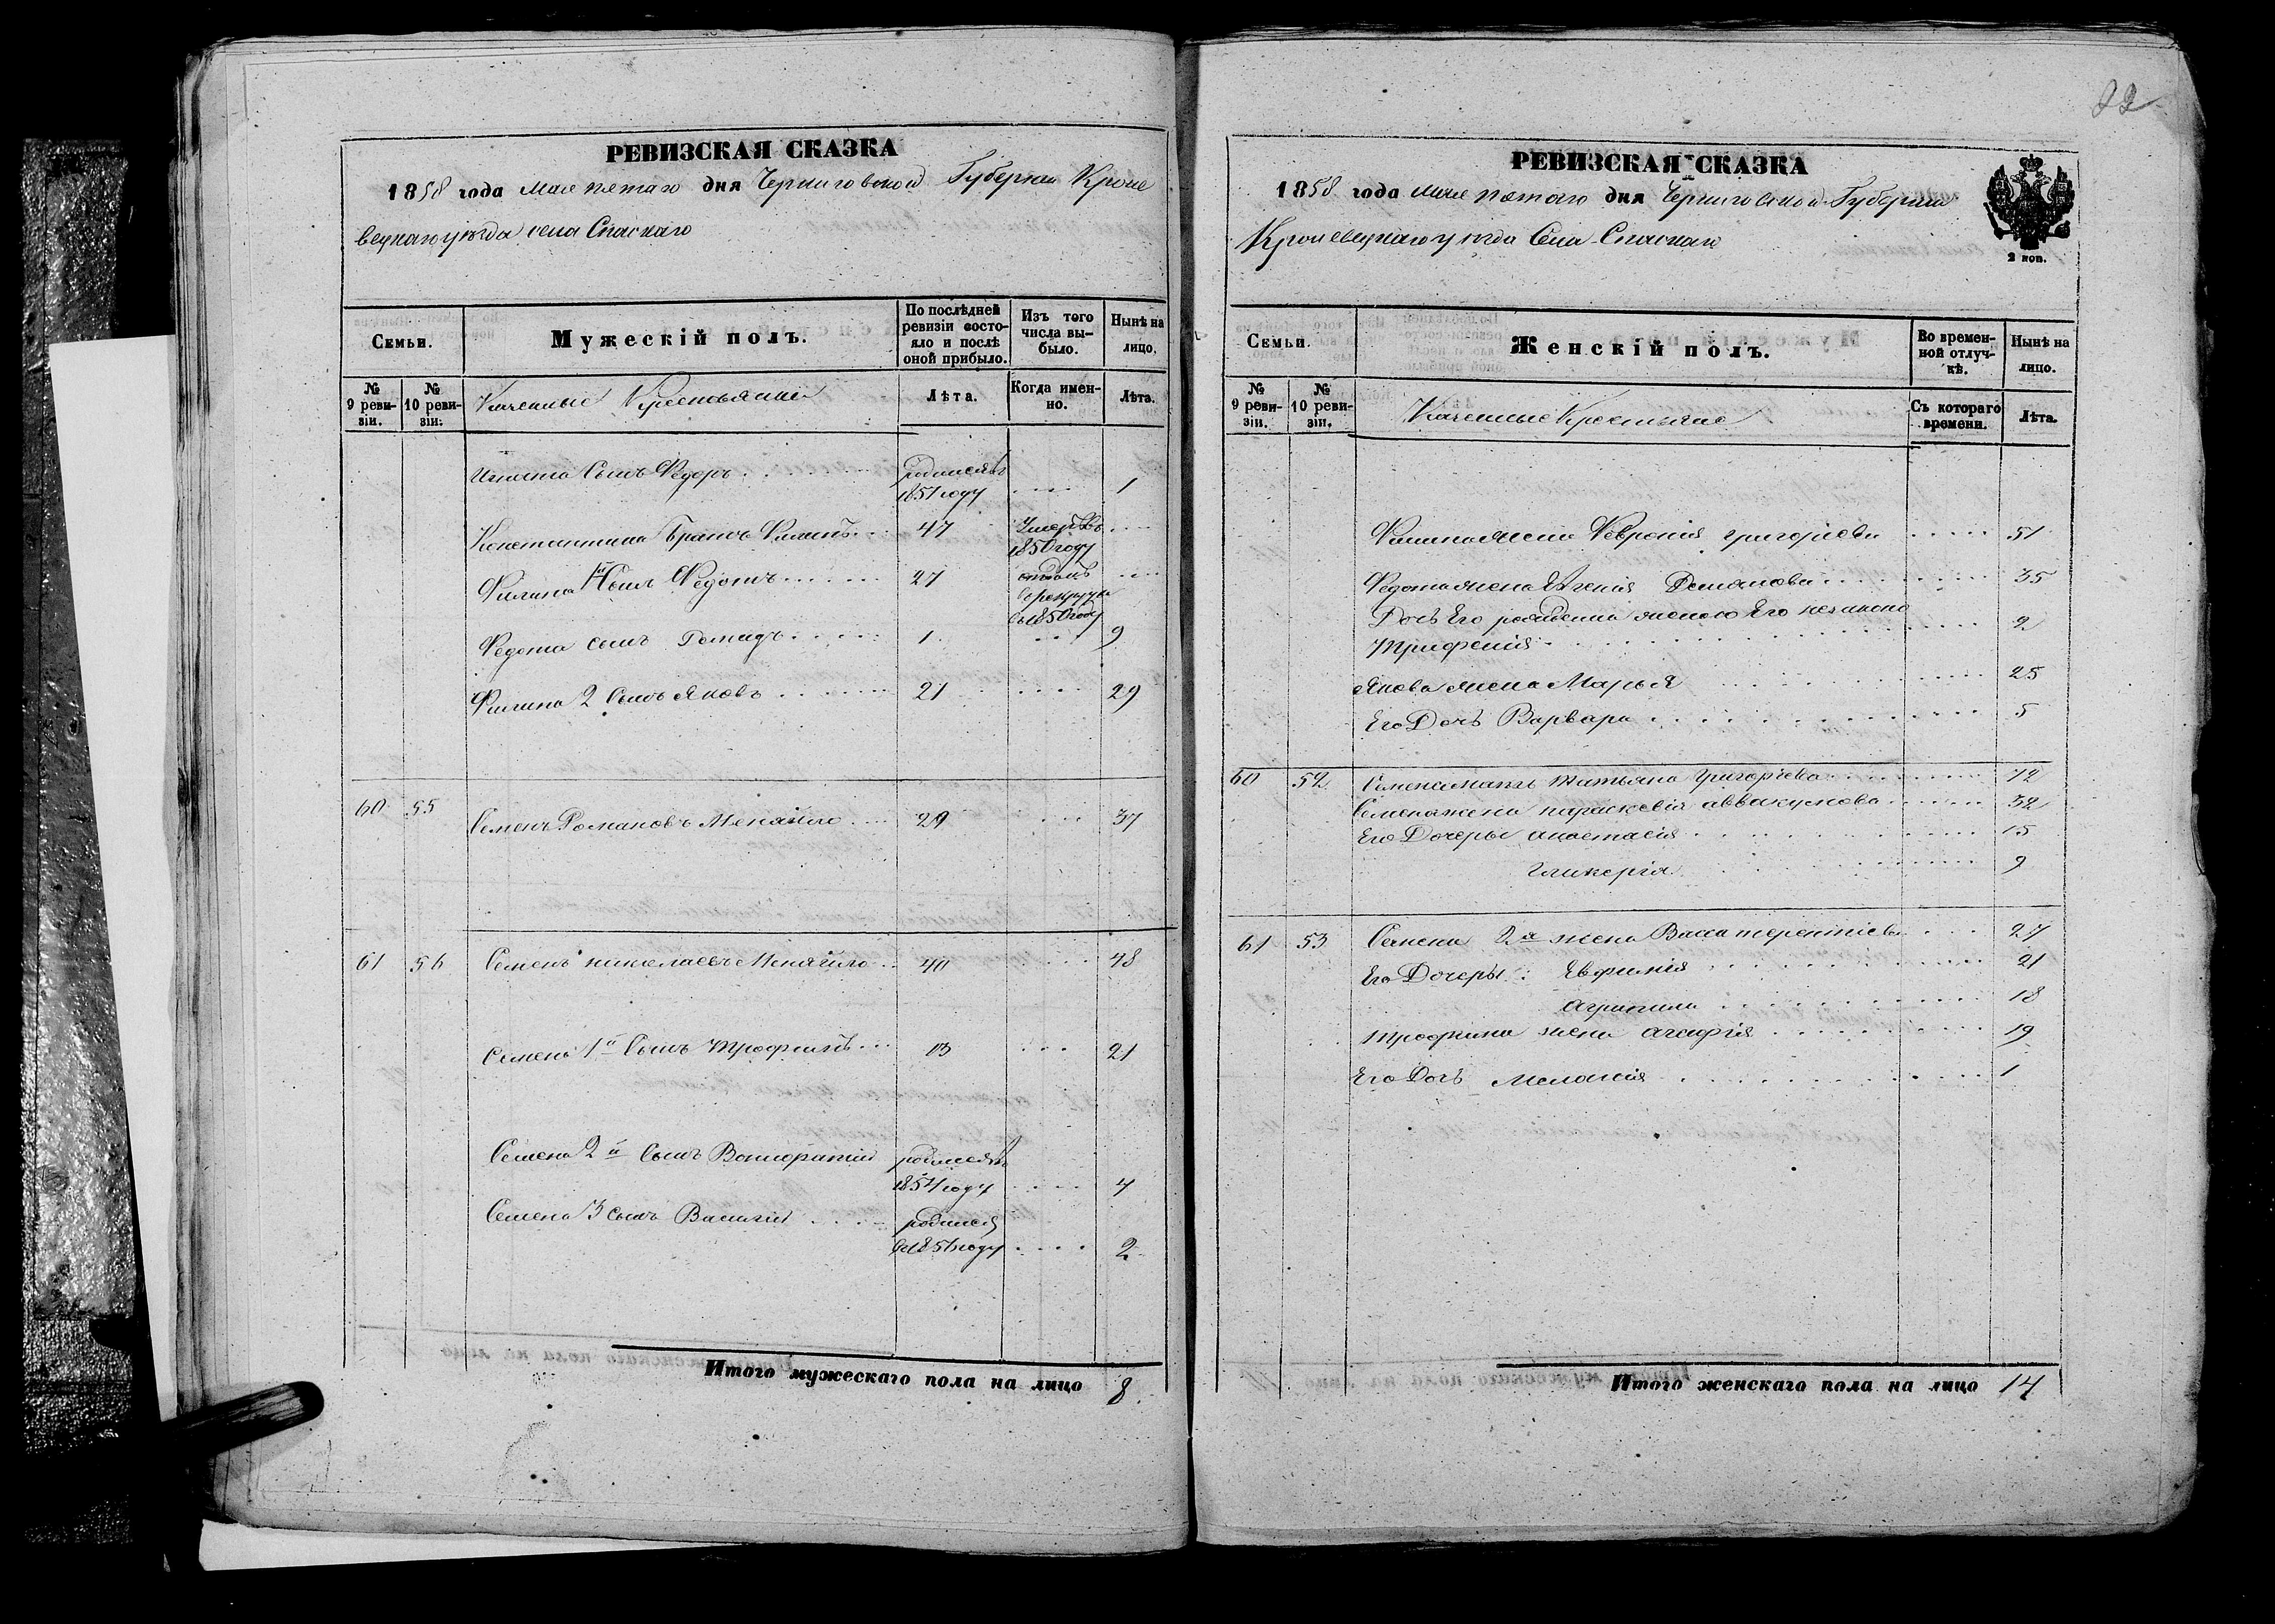 РЕВИЗСКАЯ СКАЗКА
1858 года мая пятаго дня Черниговской Губернии Кроле
вецкаго уѣзда села Спаскаго
Семьи.
Мужескій полъ.
По послѣдней ревизіи состояло и послѣ оной прибыло.
Изъ того числа выбыло.
Нынѣ на лицо.
№ 9 ревизіи.
№ 10 ревизіи.
Казенные Крестьяне
Лѣта.
Когда именно.
Лѣта.
Игната Сынъ Федоръ родился въ
1851 году 1
Константина Братъ Филипъ 47 Умеръ въ
1850 году
Филипа 1й Сынъ Федотъ 27 отданъ
в рекруты
въ 1850 году
Федота сынъ 1 9
Филипа 2 Сынъ Яковъ 21 29
60 55 Семенъ Романовъ 29 37
61 56 Семенъ Николаевъ 40 48
Семена 1й Сынъ Трофимъ 13 21
Семена 2й Сынъ родился въ
1854 году 4
Семена 3 сынъ Василий родился
въ 1856 году 2
Итого мужескаго пола на лицо 8
22
РЕВИЗСКАЯ СКАЗКА
1858 года мая пятаго дня Черниговской Губернии
Кролевецкаго уѣзда Села Спаскаго
2 коп.
Семьи.
Женскій полъ.
Во временной отлучкѣ.
Нынѣ на лицо.
№ 9 ревизіи.
№ 10 ревизіи.
Казенные Крестьяне
Съ котораго времени.
Лѣта.
Филипа жена Феврония Григорьева 51
Федота жена Евгения Демянова 35
Дочь Его женою Его незаконо
Трифения 2
Якова жена Марья 25
Его Дочь Варвара 5
60 52 Семена мать Татьяна Григорьева 72
Семена жена параскевія аввакумова 32
Его Дочеры анастасія 15
Гликерія 9
61 53 Семена 2я жена Васса терентиева 27
Его Дочеры: Евфимія 21
Агрипина 18
Трофима жена агафія 19
Его Дочь Меланія 1
Итого женскаго пола на лицо 14